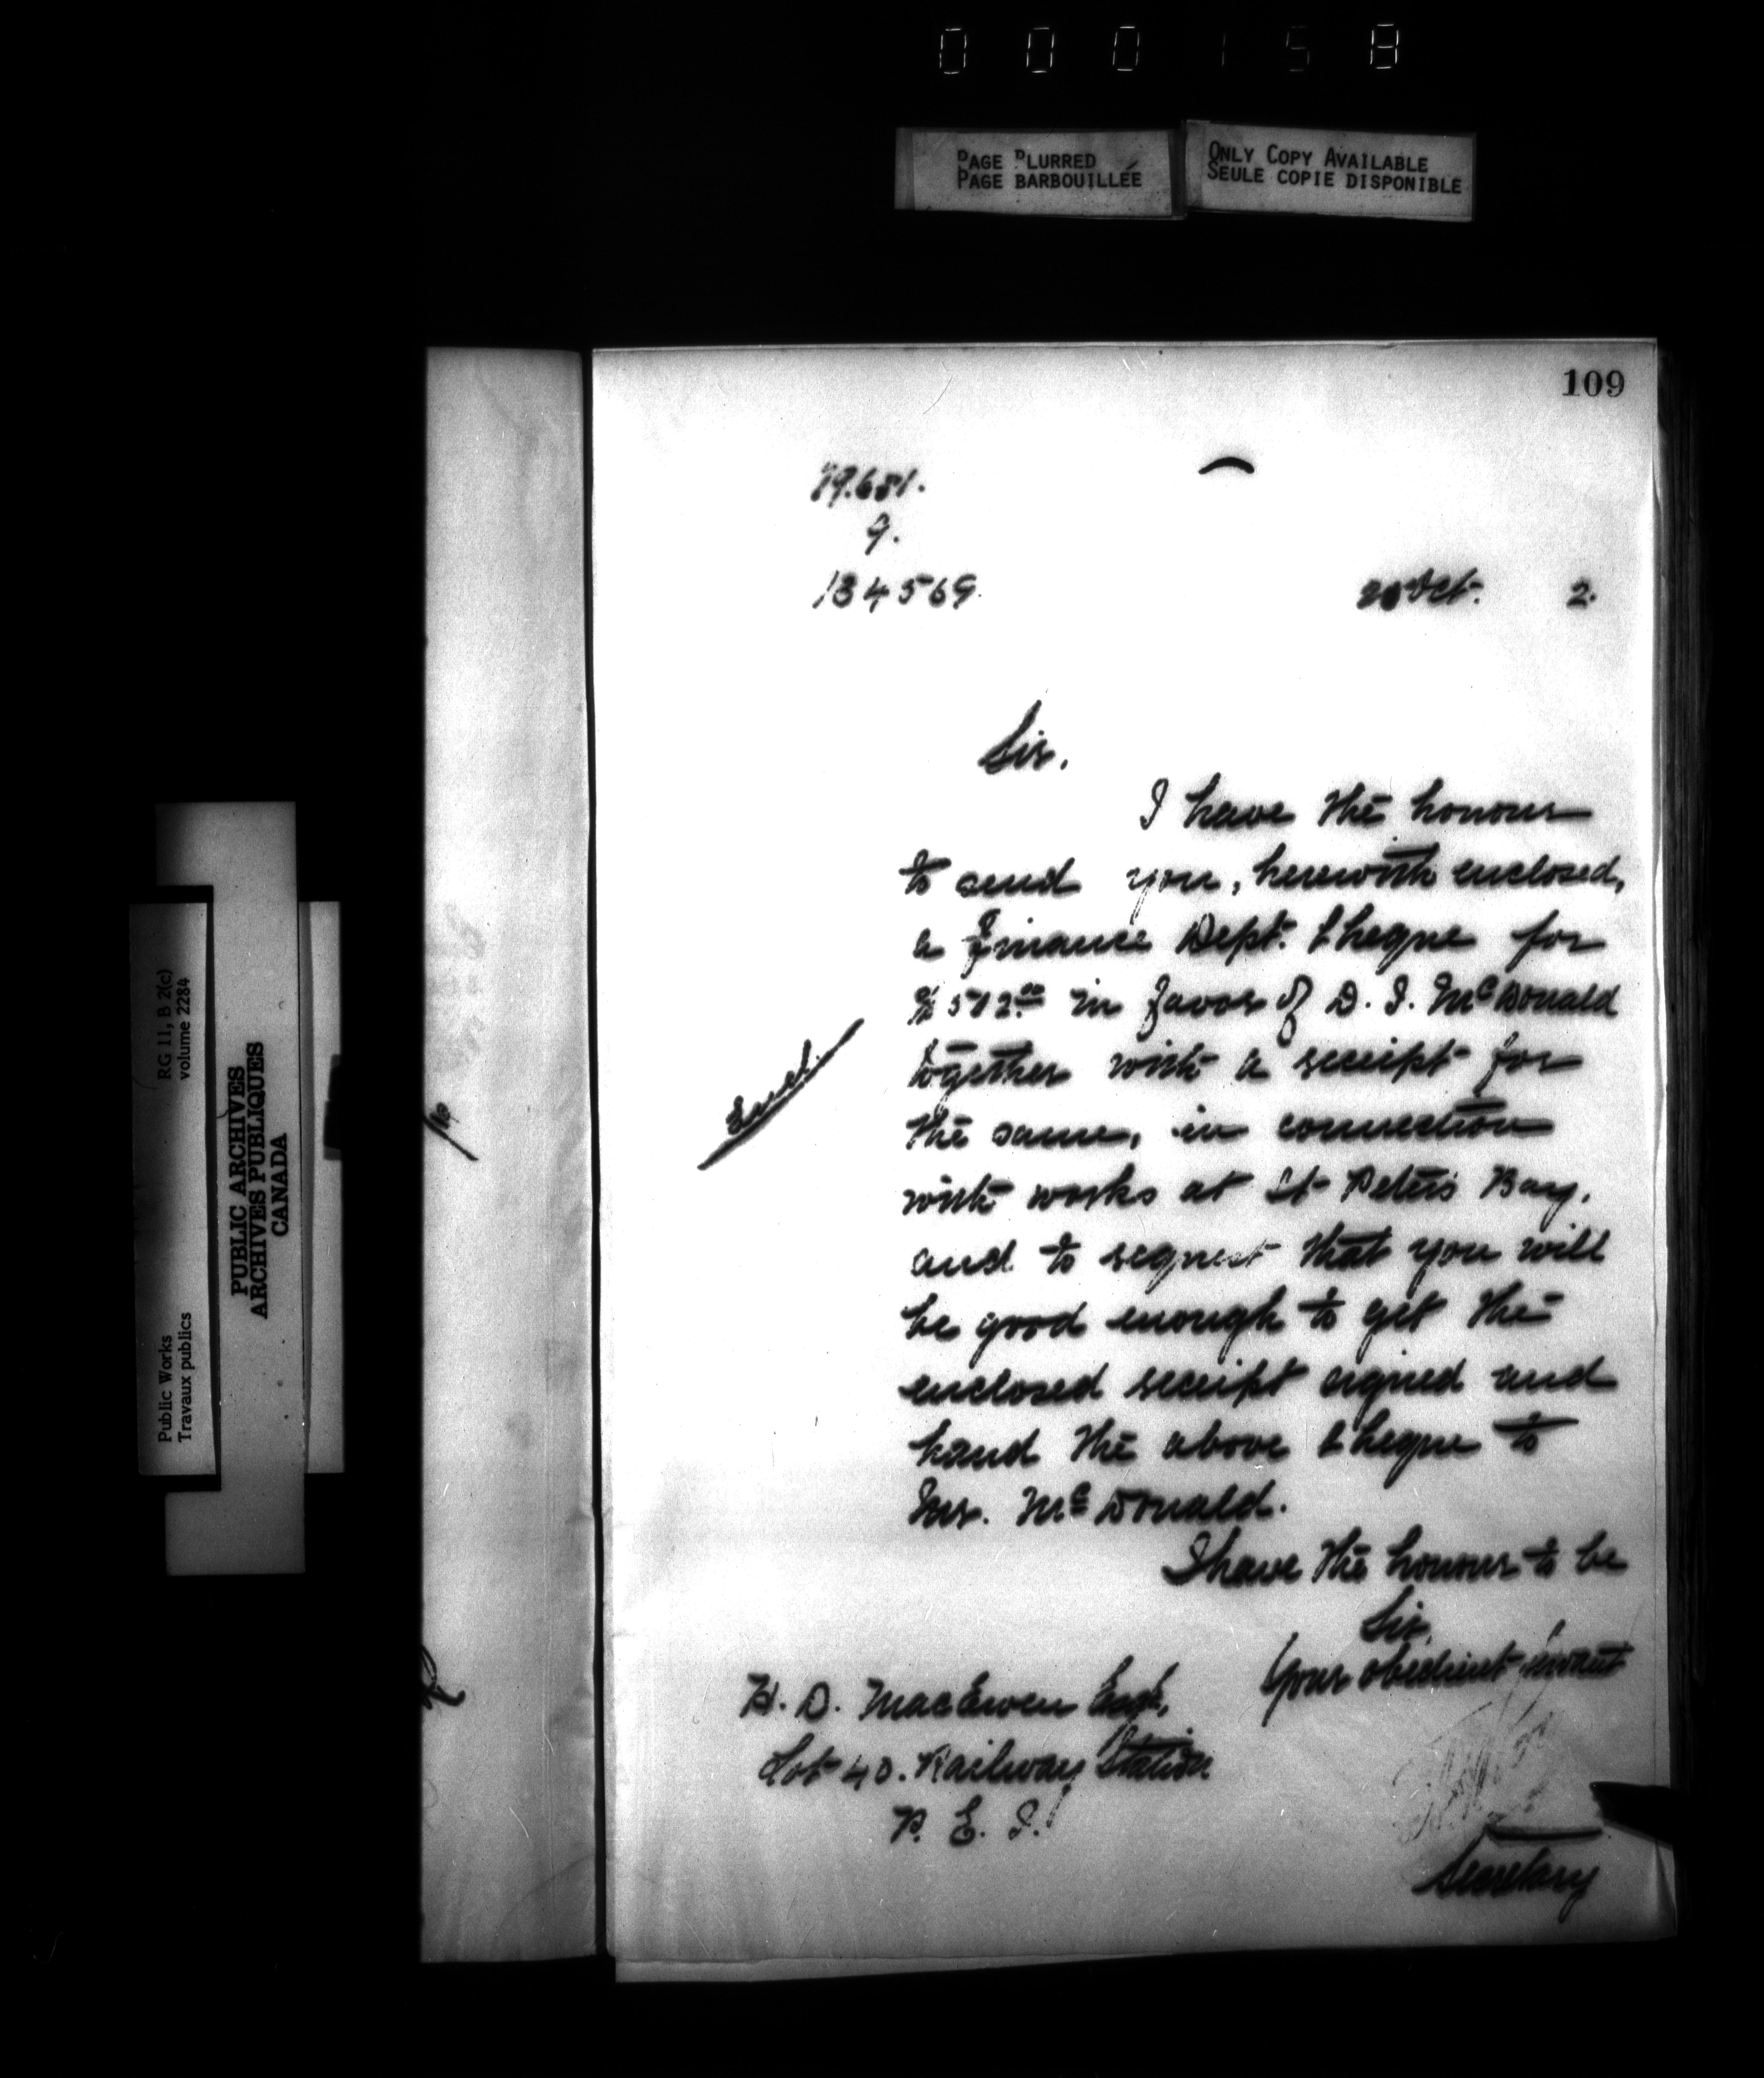 000158
PAGE BLURRED
PAGE BARBOUILLÉE
ONLY COPY AVAILABLE
SEULE COPIE DISPONIBLE
109
9.
134569
20 Oct. 2.
Sir,
I have the honour
to send you, herewith enclosed,
a Finance Dept. Cheque for
$512.00 in favor of D. I. McDonald
together with a receipt for
the same, in connection
with works at St Peter's Bay,
and to request that you will
be good enough to get the
enclosed receipt signed and
hand the above Cheque to
Mr. McDonald.
I have the honour to be
Sir,
Your obedient servant
Secretary
H. D. MacEwen Esqr,
Lot 40. Railway Station
P. E. I.
RG 11, B 2(c)
volume 2284
Public Works
Travaux publics
PUBLIC ARCHIVES
ARCHIVES PUBLIQUES
CANADA